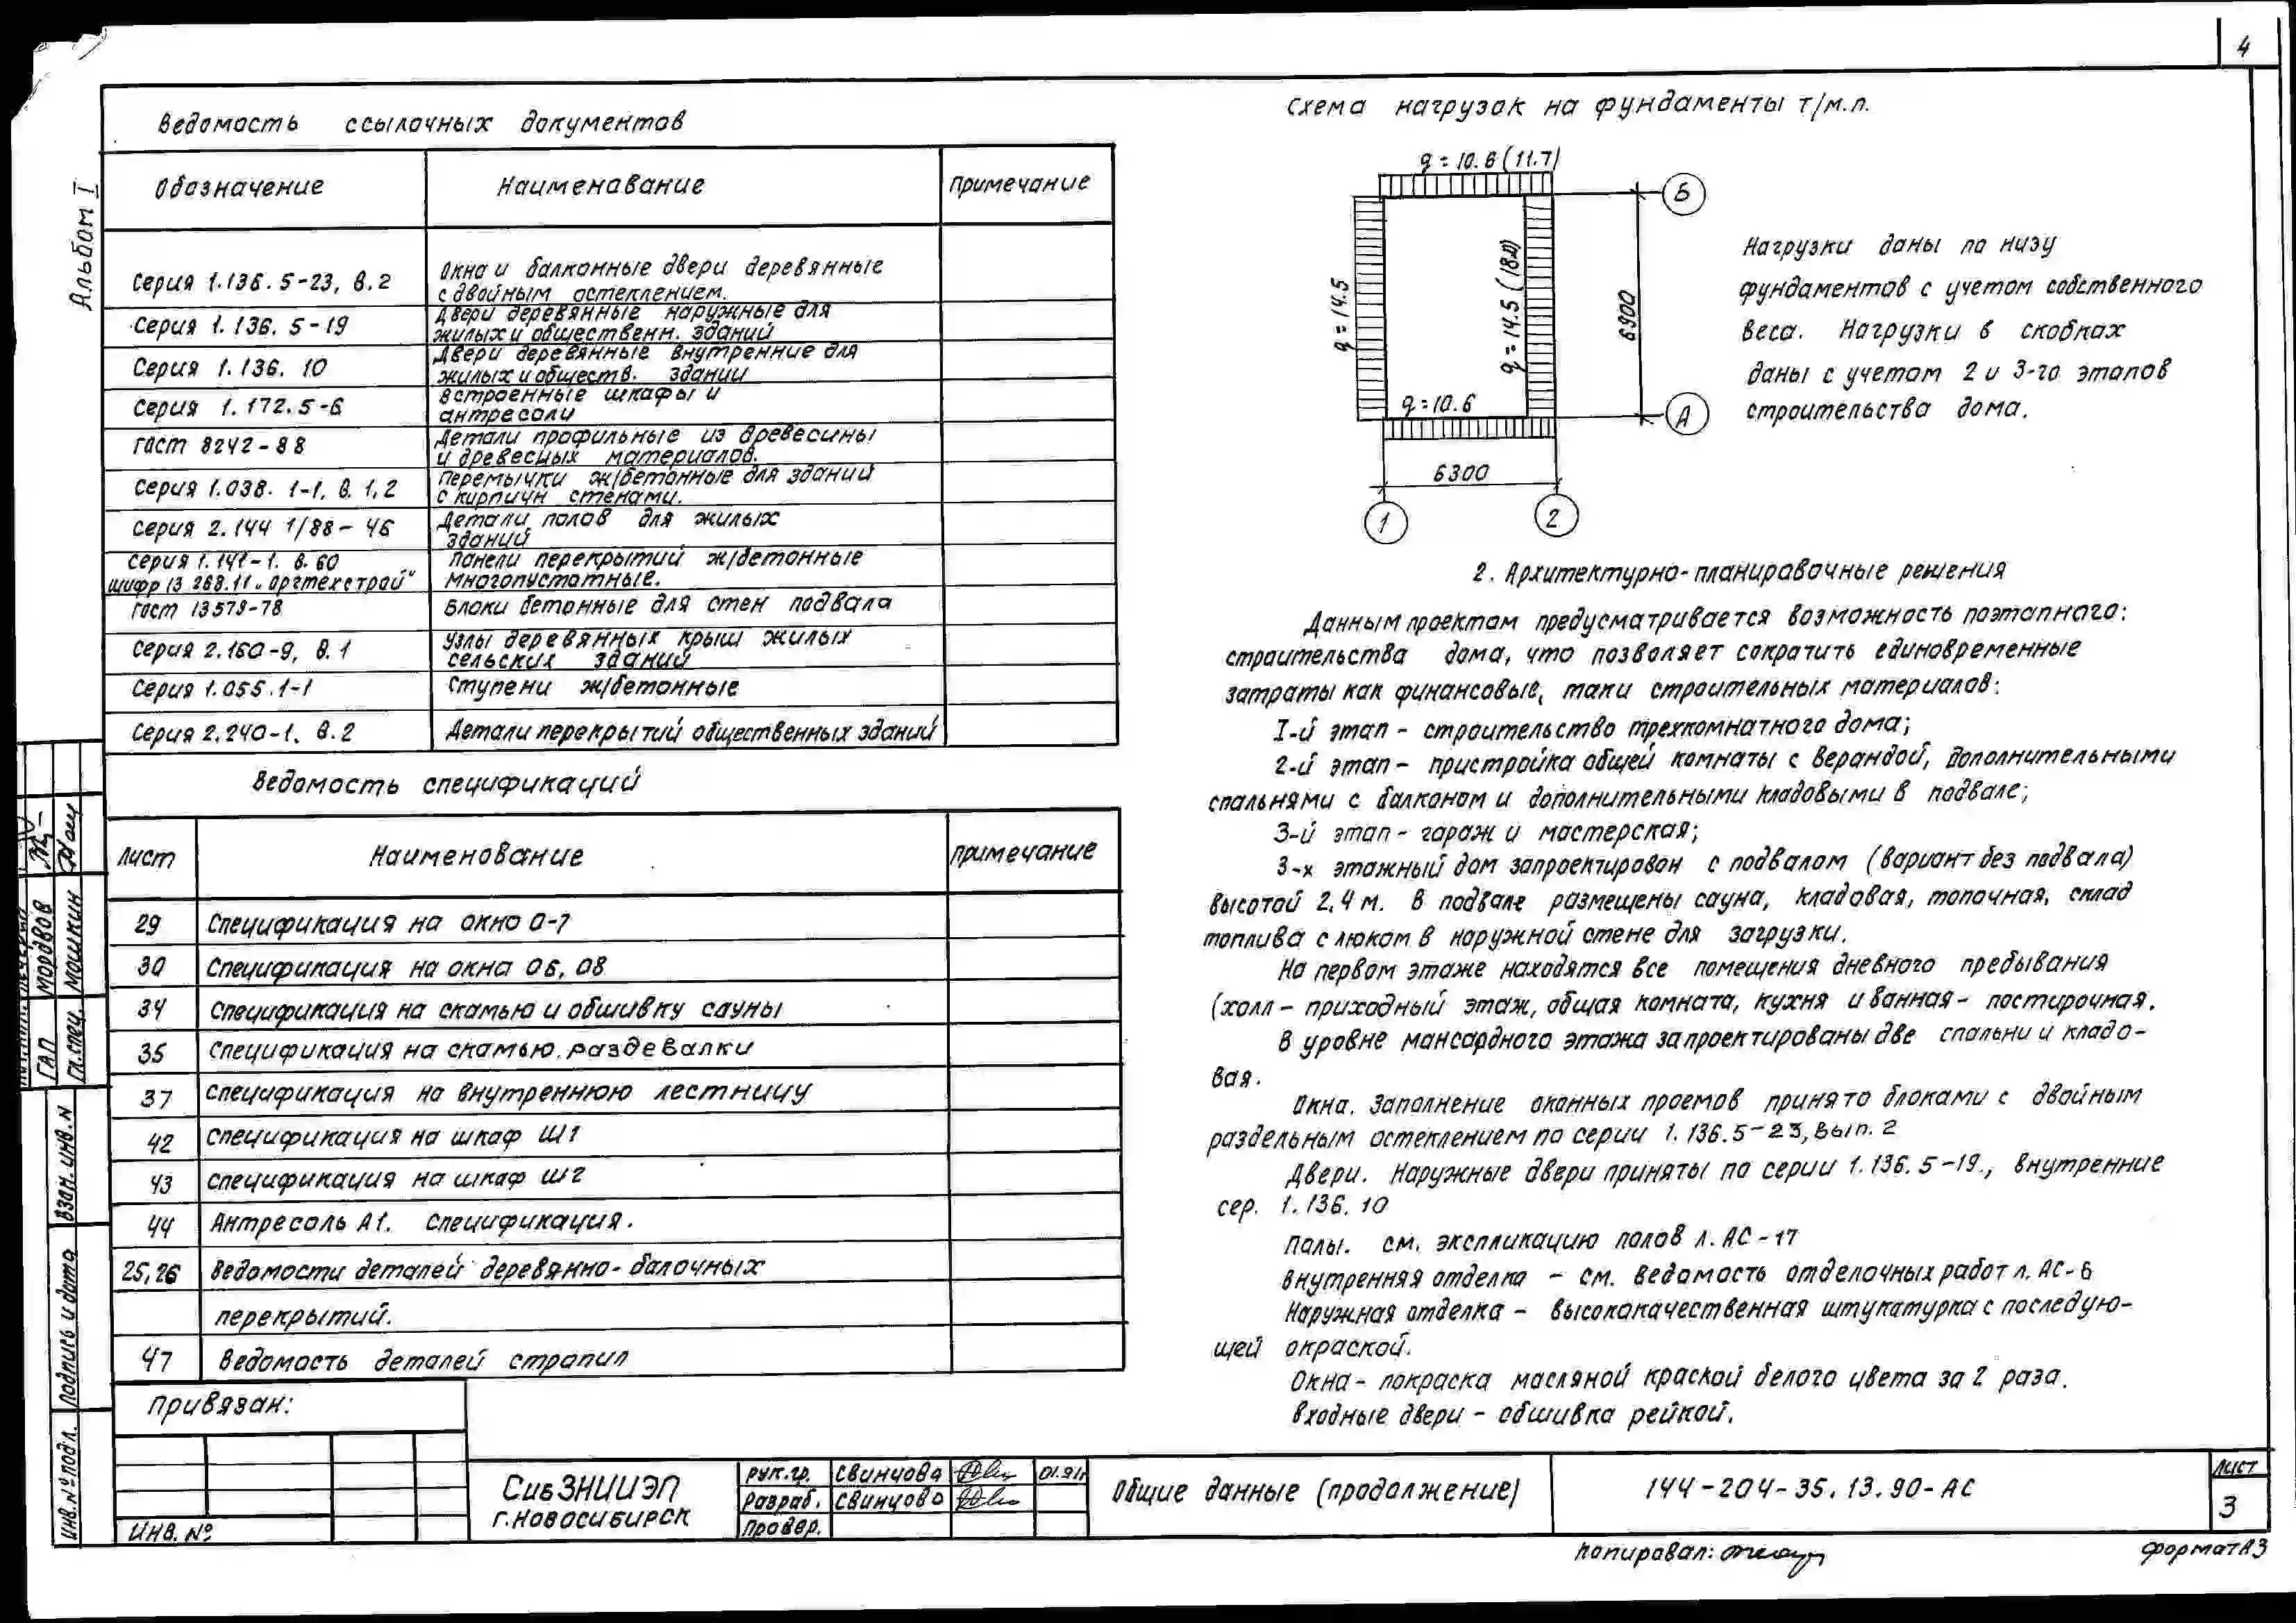 4
Альбом I
Ведомость ссылочных документов
Обозначение Наименование Примечание
Серия 1.136.5-23, в.2 Окна и балконные двери деревянные
с двойным остеклением.
Серия 1.136.5-19 Двери деревянные наружные для
жилых и обществен. зданий
Серия 1.136.10 Двери деревянные внутренние для
жилых и обществ. зданий
Серия 1.172.5-6 Встроенные шкафы и
антресоли
ГОСТ 8242-88 Детали профильные из древесины
и древесных материалов.
Серия 1.038.1-1, в.1,2 Перемычки ж/бетонные для зданий
с кирпичн стенами.
Серия 2.144 1/88-46 Детали полов для жилых
зданий
Серия 1.141-1. в.60 Панели перекрытий ж/бетонные
шифр 13 268.11 „Оргтехстрой" многопустотные.
ГОСТ 13579-78 Блоки бетонные для стен подвала
Серия 2.160-9, в.1 Узлы деревянных крыш жилых
сельских зданий
Серия 1.055.1-1 Ступени ж/бетонные
Серия 2.240-1. в.2 Детали перекрытий общественных зданий
Ведомость спецификаций
Лист Наименование Примечание
29 Спецификация на окно О-7
30 Спецификация на окна О6, О8
34 Спецификация на скамью и обшивку сауны
35 Спецификация на скамью раздевалки
37 Спецификация на внутреннюю лестницу
42 Спецификация на шкаф Ш1
43 Спецификация на шкаф Ш2
44 Антресоль А1. Спецификация.
25,26 Ведомости деталей деревянно-балочных
перекрытий.
47 Ведомость деталей стропил
Схема нагрузок на фундаменты т/м.п.
q=10.6(11.7)
Б
q=14.5
q=14.5 (18.0)
6900
q=10.6
А
6300
1 2
Нагрузки даны по низу
фундаментов с учетом собственного
веса. Нагрузки в скобках
даны с учетом 2 и 3-го этапов
строительства дома.
2. Архитектурно-планировочные решения
Данным проектом предусматривается возможность поэтапного
строительства дома, что позволяет сократить единовременные
затраты как финансовые, так и строительных материалов:
I-й этап - строительство трехкомнатного дома;
2-й этап - пристройка общей комнаты с верандой, дополнительными
спальнями с балконом и дополнительными кладовыми в подвале;
3-й этап - гараж и мастерская;
3-х этажный дом запроектирован с подвалом (вариант без подвала)
высотой 2,4 м. В подвале размещены сауна, кладовая, топочная, склад
топлива с люком в наружной стене для загрузки.
На первом этаже находятся все помещения дневного пребывания
(холл - приходный этаж, общая комната, кухня и ванная - постирочная.
В уровне мансардного этажа запроектированы две спальни и кладо-
вая.
Окна. Заполнение оконных проемов принято блоками с двойным
раздельным остеклением по серии 1.136.5-23, вып. 2
Двери. Наружные двери приняты по серии 1.136.5-19., внутренние
сер. 1.136.10
Полы. см. экспликацию полов л. АС-17
Внутренняя отделка - см. ведомость отделочных работ л. АС-6
Наружная отделка - высококачественная штукатурка с последую-
щей окраской.
Окна - покраска масляной краской белого цвета за 2 раза.
Входные двери - обшивка рейкой.
ГАП Мордвов
Гл.спец. Мошкин
Взам. инв. N
Подпись и дата
Инв. № подл.
Привязан:
Инв. №
СибЗНИИЭП
г.Новосибирск
Рук.гр. Свинцова 01.91г
Разраб. Свинцова
Провер.
Общие данные (продолжение)
144-204-35.13.90-АС
Лист
3
Копировал:
Формат А3